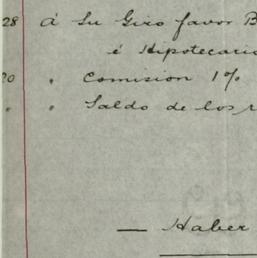 28 Á Su Giro favor B
é Hipotecario
20 " Comision 1%
" " Saldo de los r
— Haber